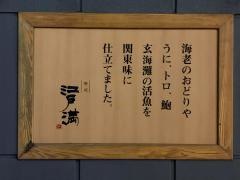 海老のおどりや
うに、トロ、鮑
玄海灘の活魚を
関東味に
仕立てました。
江戸満